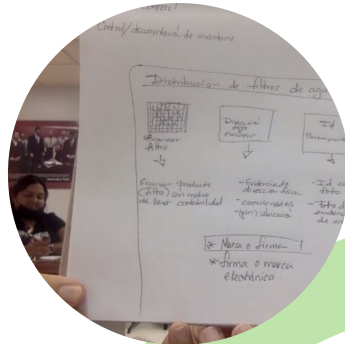 Control/documental de inventario
Distribución de filtros de agua
Escanear
filtro
Dirección
Escanear
Id
Escanear producto
(filtro) con motivo
de llevar contabilidad
- Evidencia de
dirección física
- coordenadas
- (pin) ubicación
- Id con
foto
- foto de
evidencia
* Marca o firma !
* firma o marca
electrónica